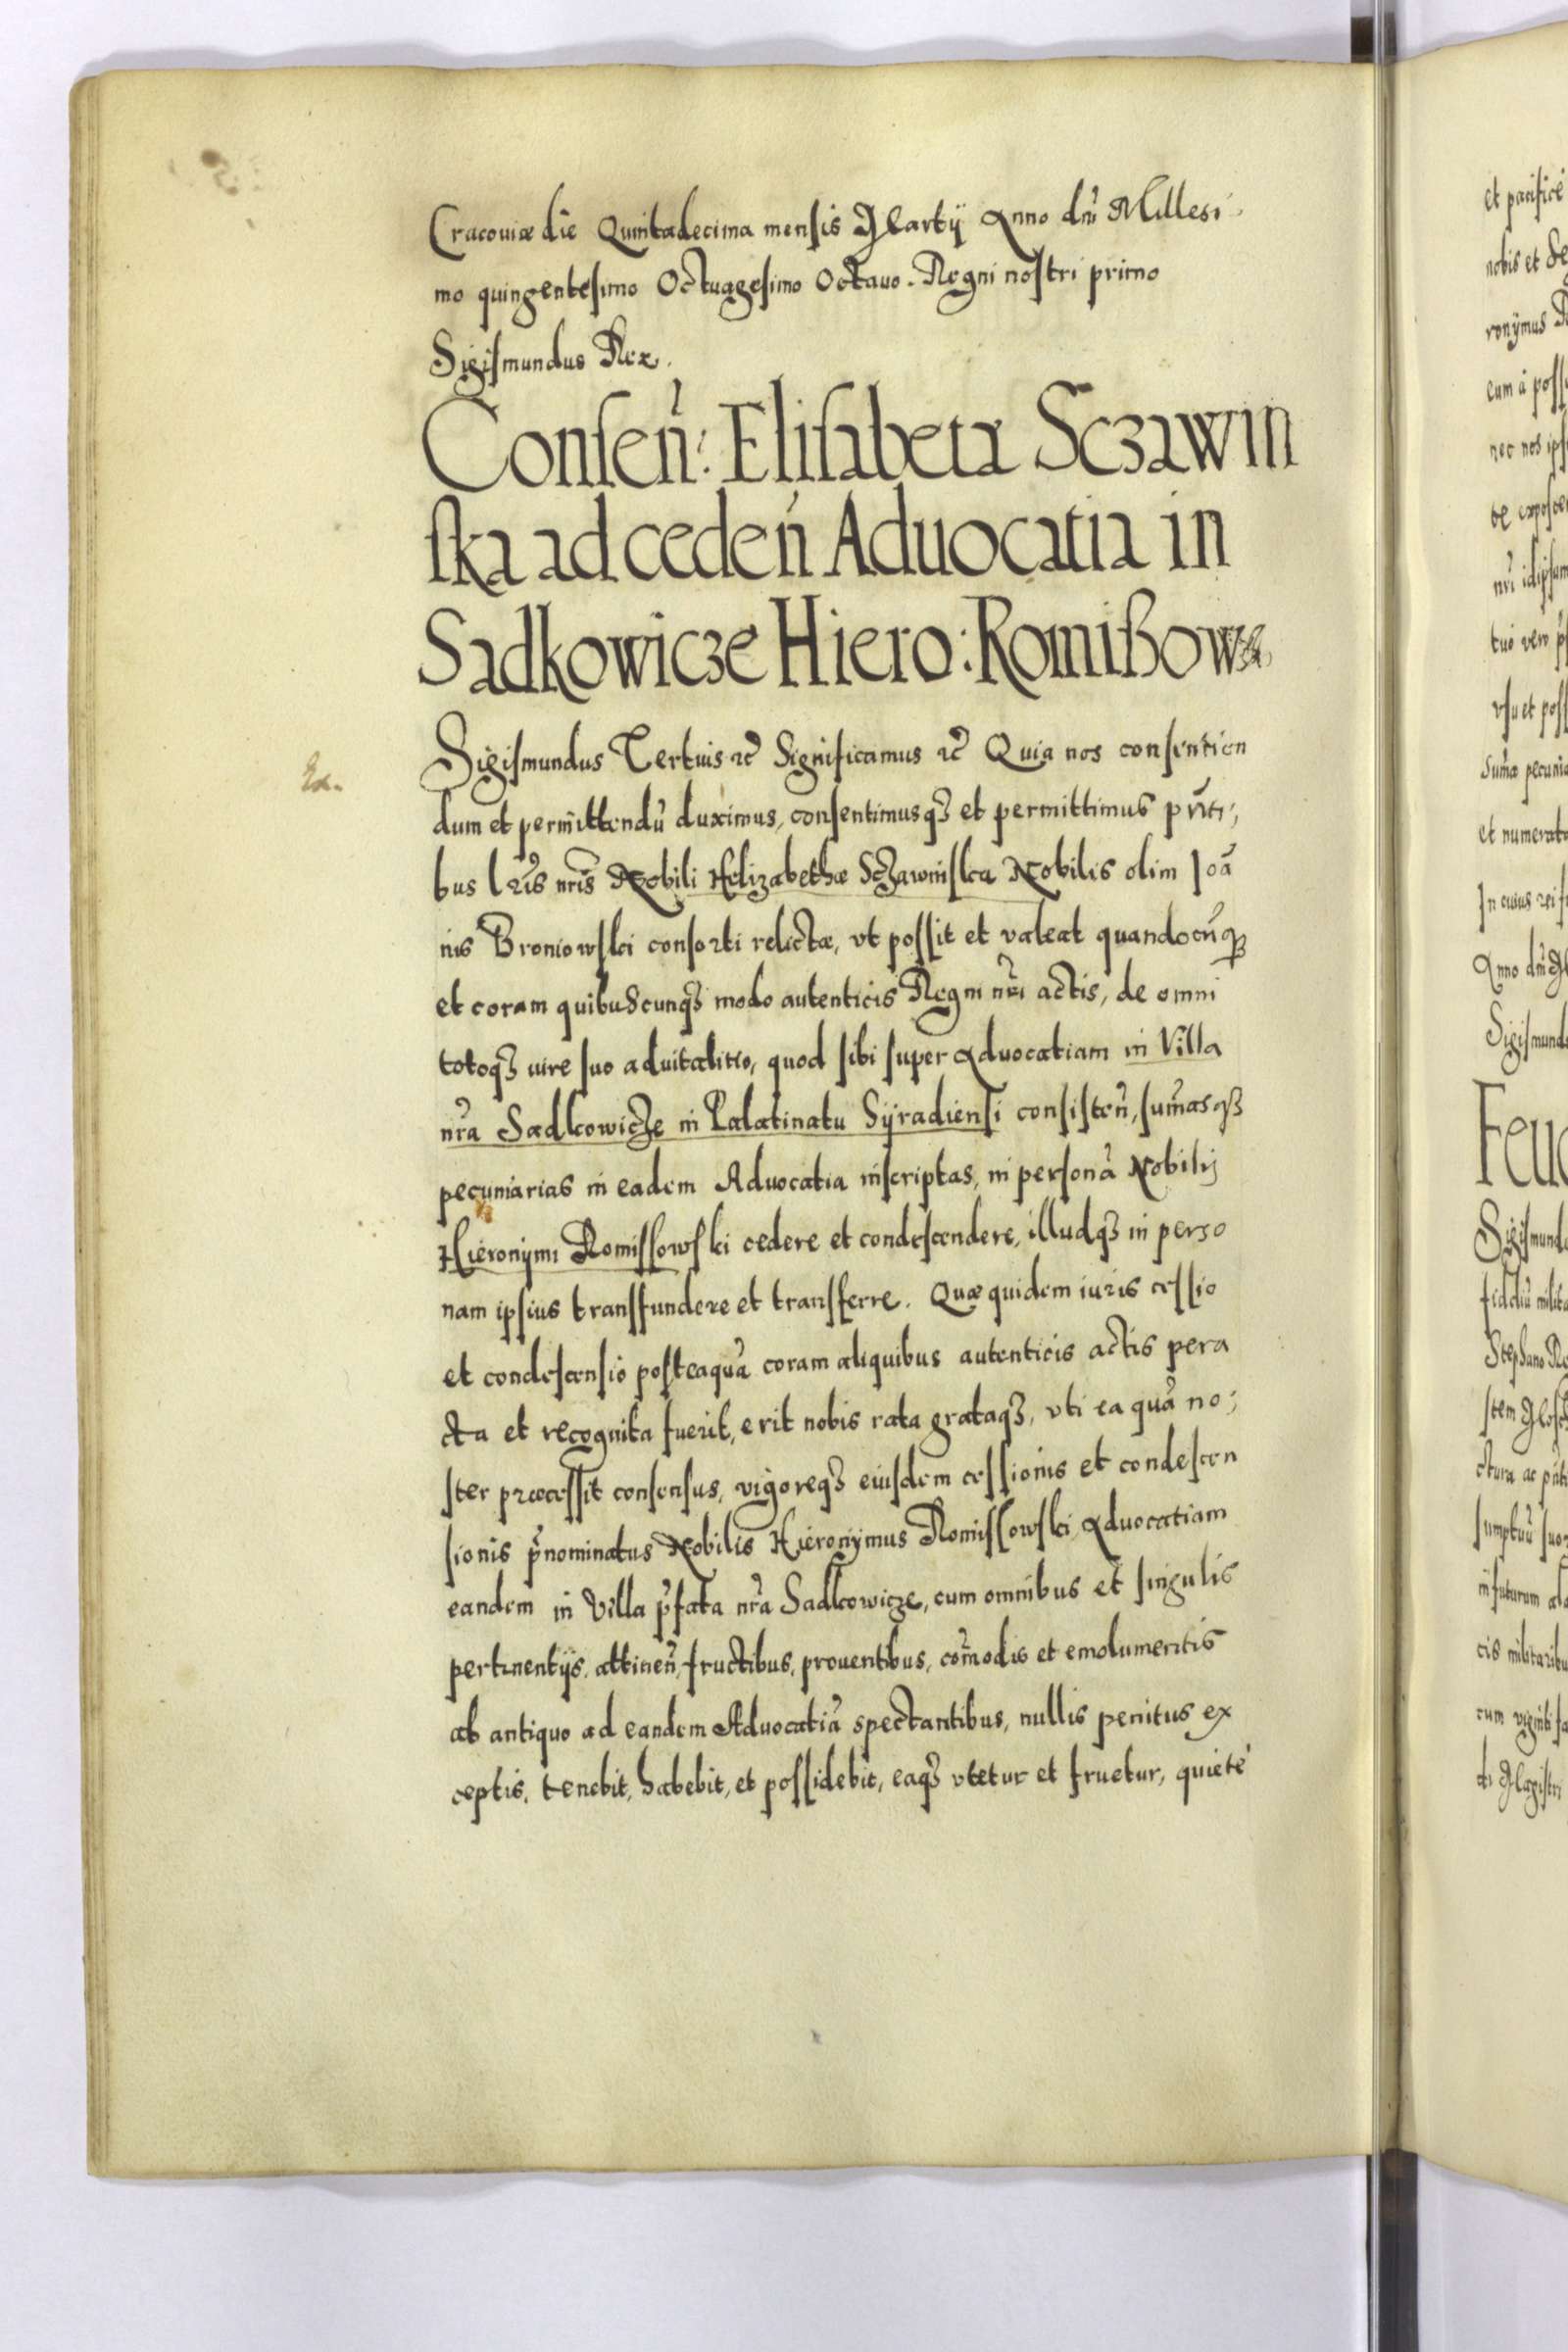 Cracouiæ die Quintadecima mensis Martij Anno dni Millesi-
mo quingentesimo Octuagesimo Octauo. Regni nostri primo
Sigismundus Rex.
Consen: Elisabeta Sczawin
ska ad ceden Aduocatia in
Sadkowicze Hiero: Romißows
Sigismundus Tertuis etc Significamus etc Quia nos consentien
dum et permittendũ duximus, consentimusqꝫ et permittimus pñti-
bus lris nris Nobili Helizabethæ Sczawinska Nobilis olim Joã
nis Broniowski consorti relictæ, vt possit et valeat quandocũqꝫ
et coram quibuscunqꝫ modo autenticis Regni nri actis, de omni
totoqꝫ iure suo aduitalitio, quod sibi super Aduocatiam in Villa
nra Sadkowicze in Palatinatu Syradiensi consisten, sumasqꝫ
pecuniarias in eadem Aduocatia inscriptas, in personã Nobilis
Hieronymi Romissowski cedere et condescendere, illudqꝫ in perso
nam ipsius transfundere et transferre. Quæ quidem iuris cessio
et condescensio posteaquã coram aliquibus autenticis actis pera
cta et recognita fuerit, erit nobis rata grataqꝫ, vti ea quã no-
ster præcessit consensus, vigoreqꝫ eiusdem cessionis et condescen
sionis pnominatus Nobilis Hieronymus Romissowski Aduocatiam
eandem in Villa pfata nra Sadkowicze, cum omnibus et singulis
pertinentijs, attinen, fructibus, prouentibus, comodis et emolumentis
ab antiquo ad eandem Aduocatiã spectantibus, nullis penitus ex
ceptis, tenebit, habebit, et possidebit, eaqꝫ vtetur et fruetur, quietè
et pacifice
nobis et
ronymus
nec nos
vsu et
et numerat
Anno dni
Sigismund
Feu
Sigismund
Stephano
cis militaribu